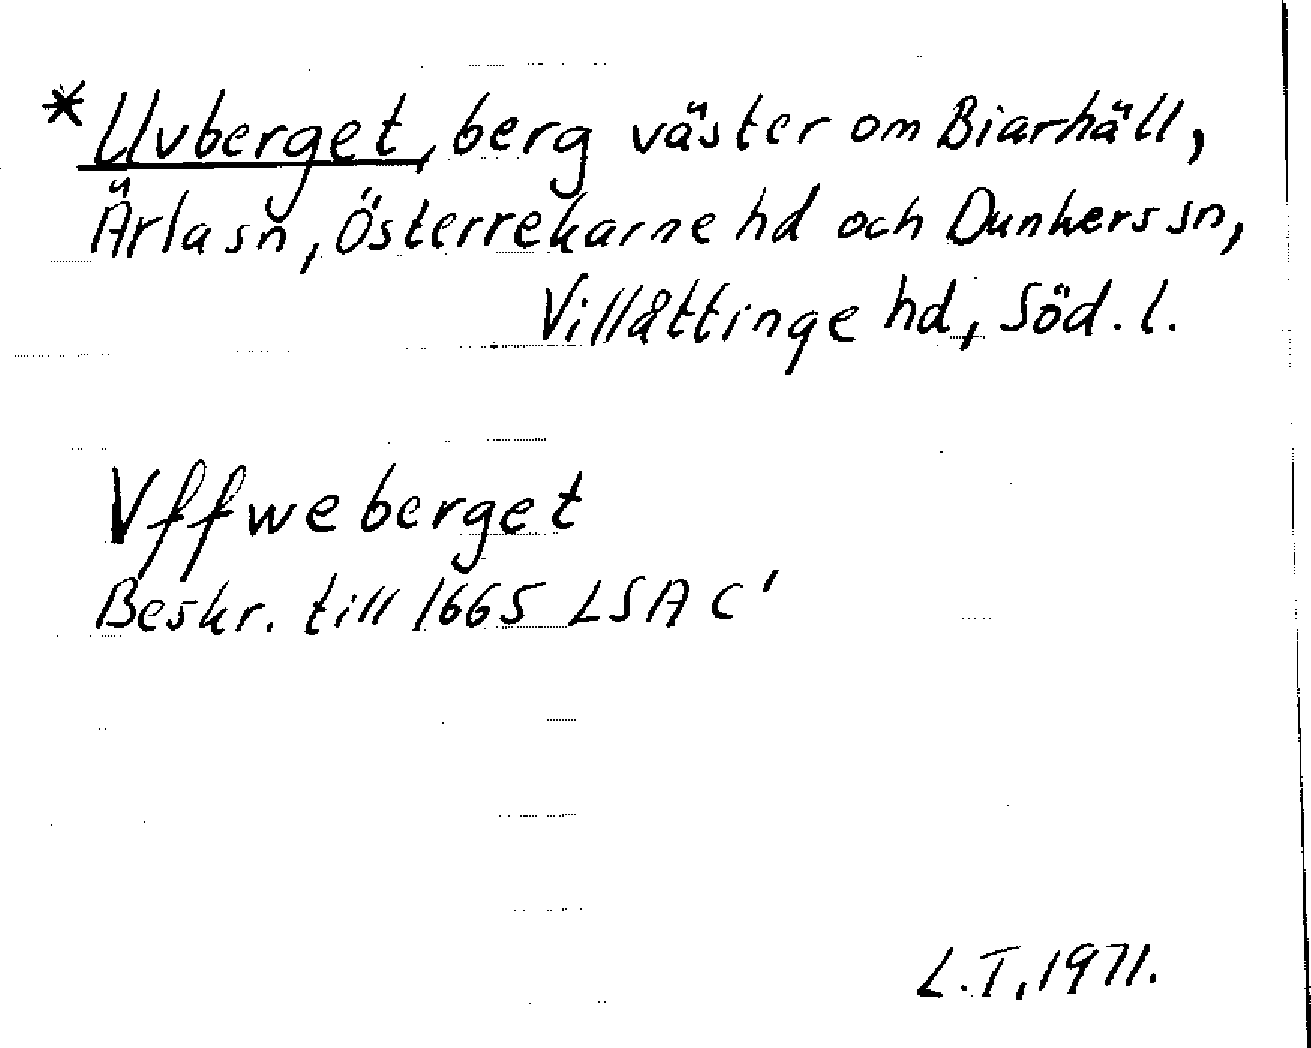 * Uvberget, berg väster om Biarhäll,
Ärla sn, Österrekarne hd och Dunkers sn,
Villåttinge hd, Söd. l.
Vffweberget
Beskr. till 1665 LSA C'
L.T. 1971.